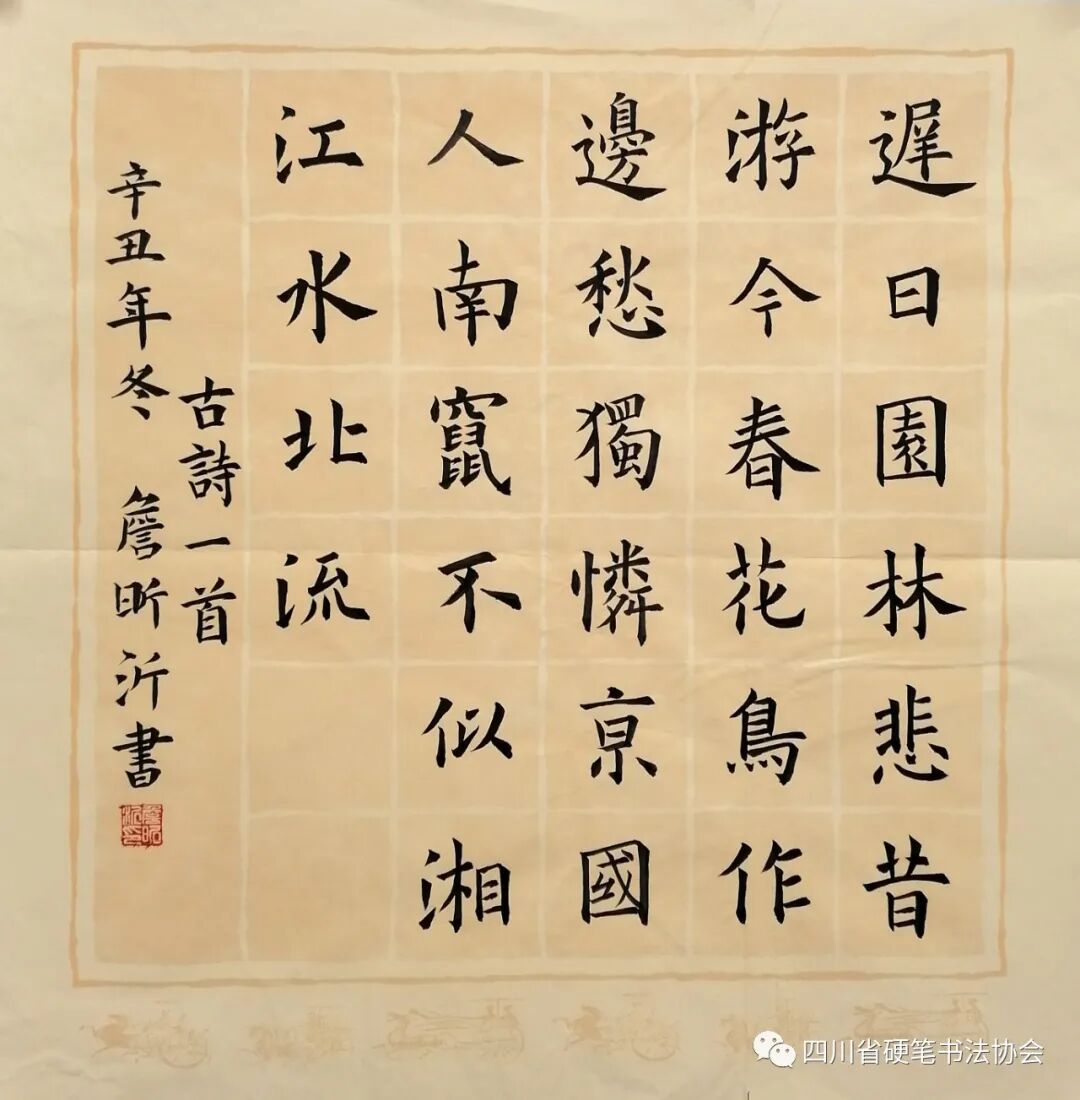 遲日園林悲昔
游今春花鳥作
邊愁獨憐京國
人南竄不似湘
江水北流
古詩一首
辛丑年冬 詹昕沂書
四川省硬笔书法协会